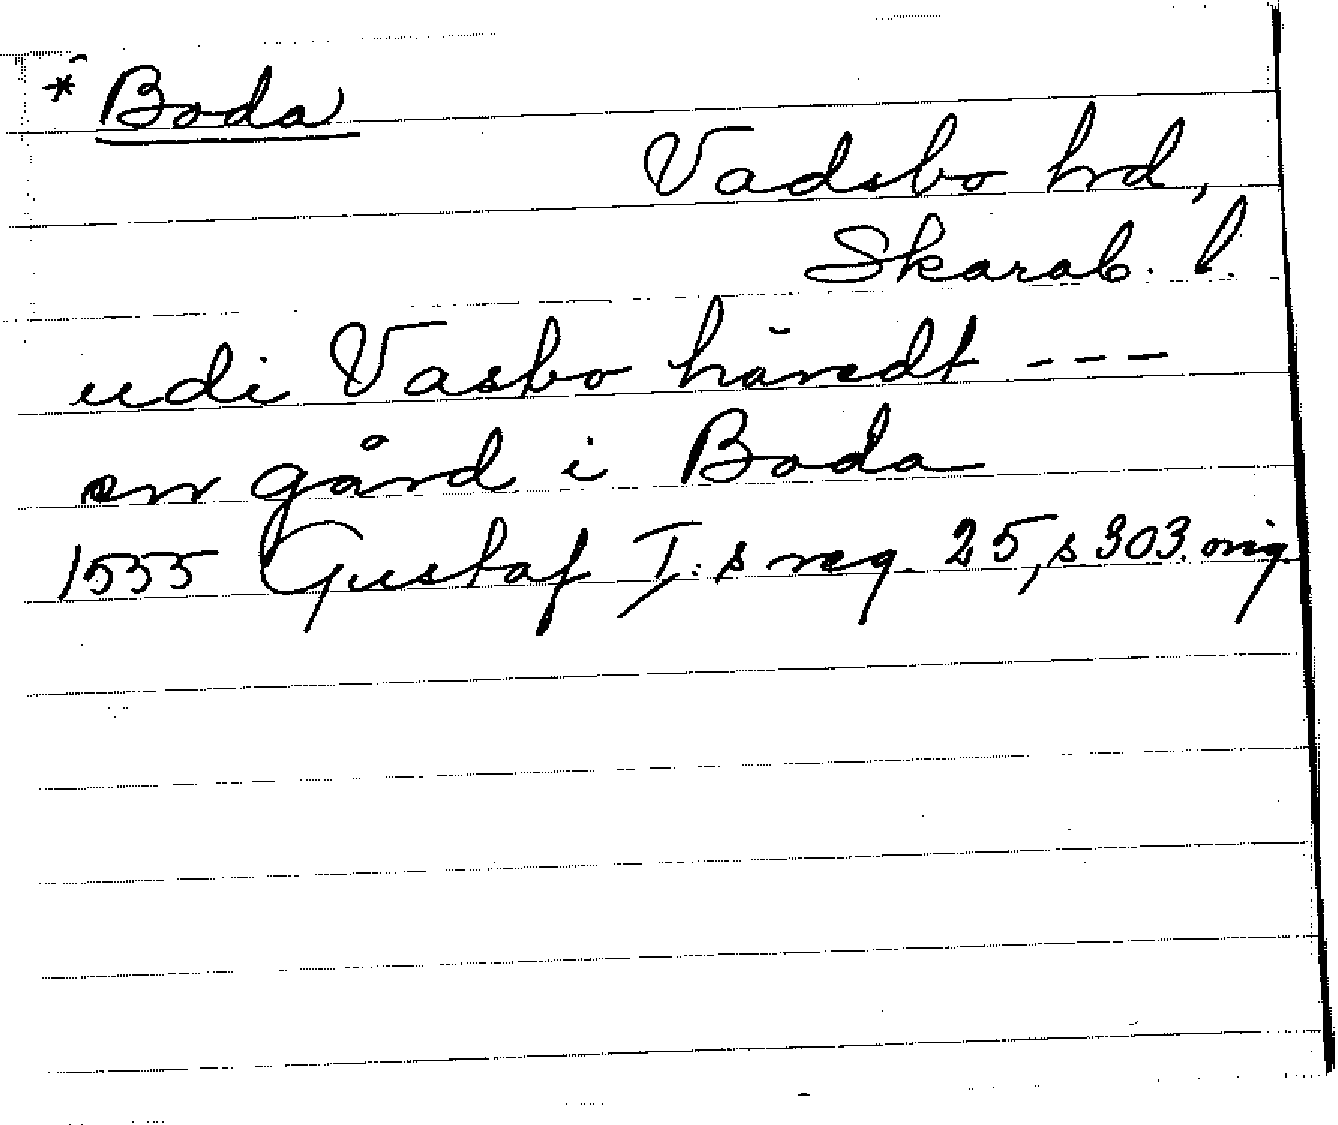 * Boda
Vadsbo hrd,
Skarab. l.
udi Vasbo häredt ---
en gård i Boda
1555 Gustaf I:s reg. 25, s 303. orig.